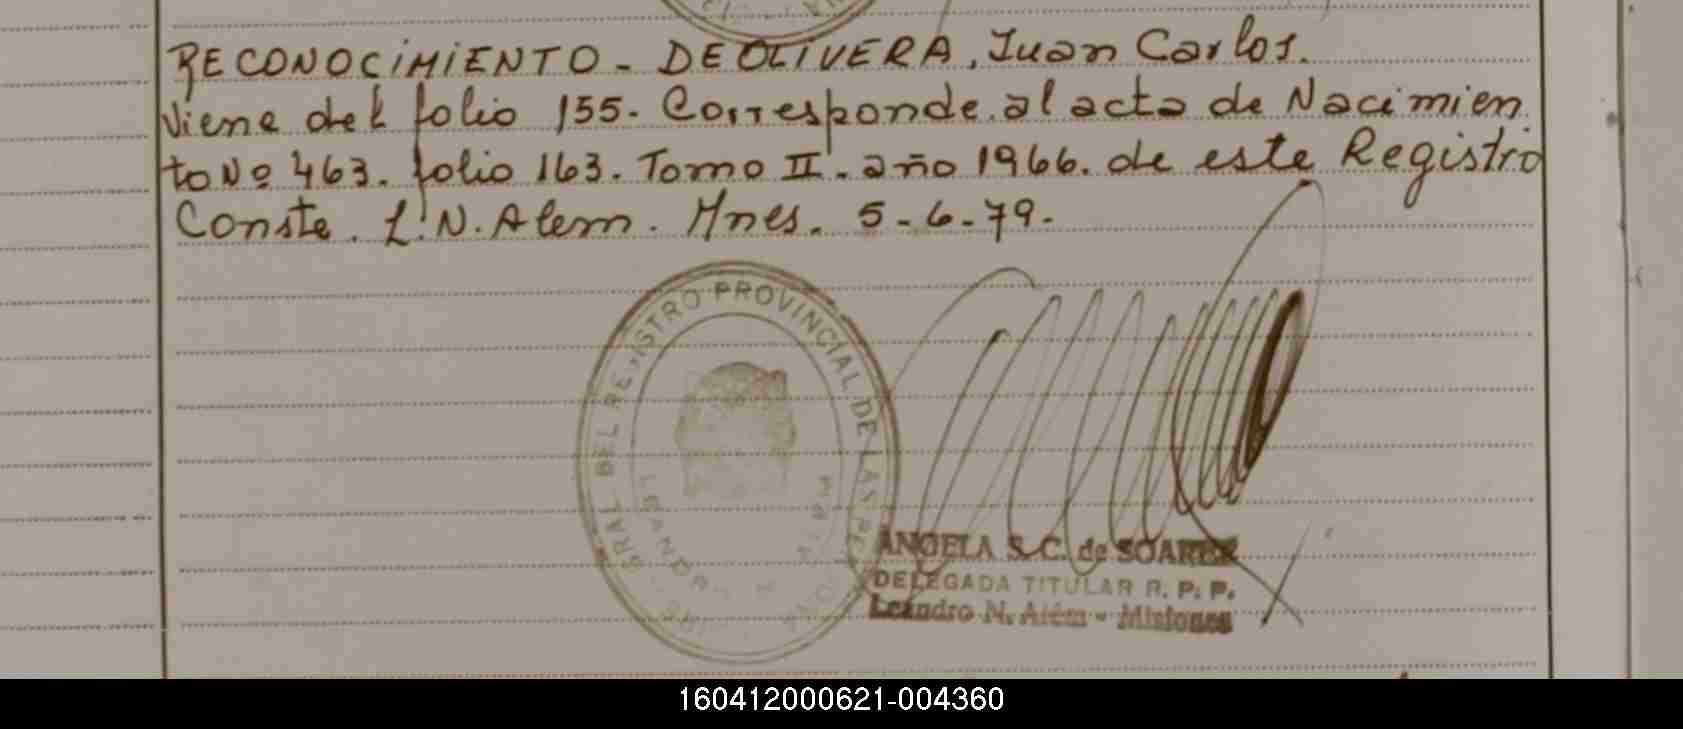 RECONOCIMIENTO - DEOLIVERA, Juan Carlos.
Viene del folio 155. Corresponde al acta de Nacimien
to Nº 463. folio 163. Tomo II. año 1966. de este Registro
Conste. L.N. Alem. Mnes. 5-6-79.
GRAL DEL REGISTRO PROVINCIAL DE LAS
ANGELA S. C. de SOAREZ
DELEGADA TITULAR R. P. P.
Leandro N. Alem - Misiones
160412000621-004360